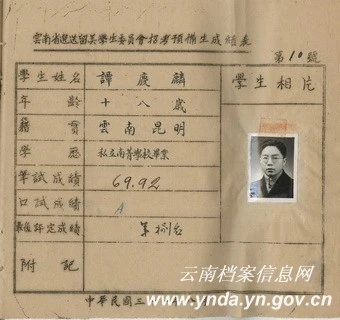 雲南省選送留美學生委員會招考預備生成績表
第10號
學生姓名 譚慶麟 學生相片
年齡 十八歲
籍貫 雲南昆明
學歷 私立南菁學校畢業
筆試成績 69.92
口試成績 A
評定成績 第捌名
附記
中華民國三
云南档案信息网
www.ynda.yn.gov.cn